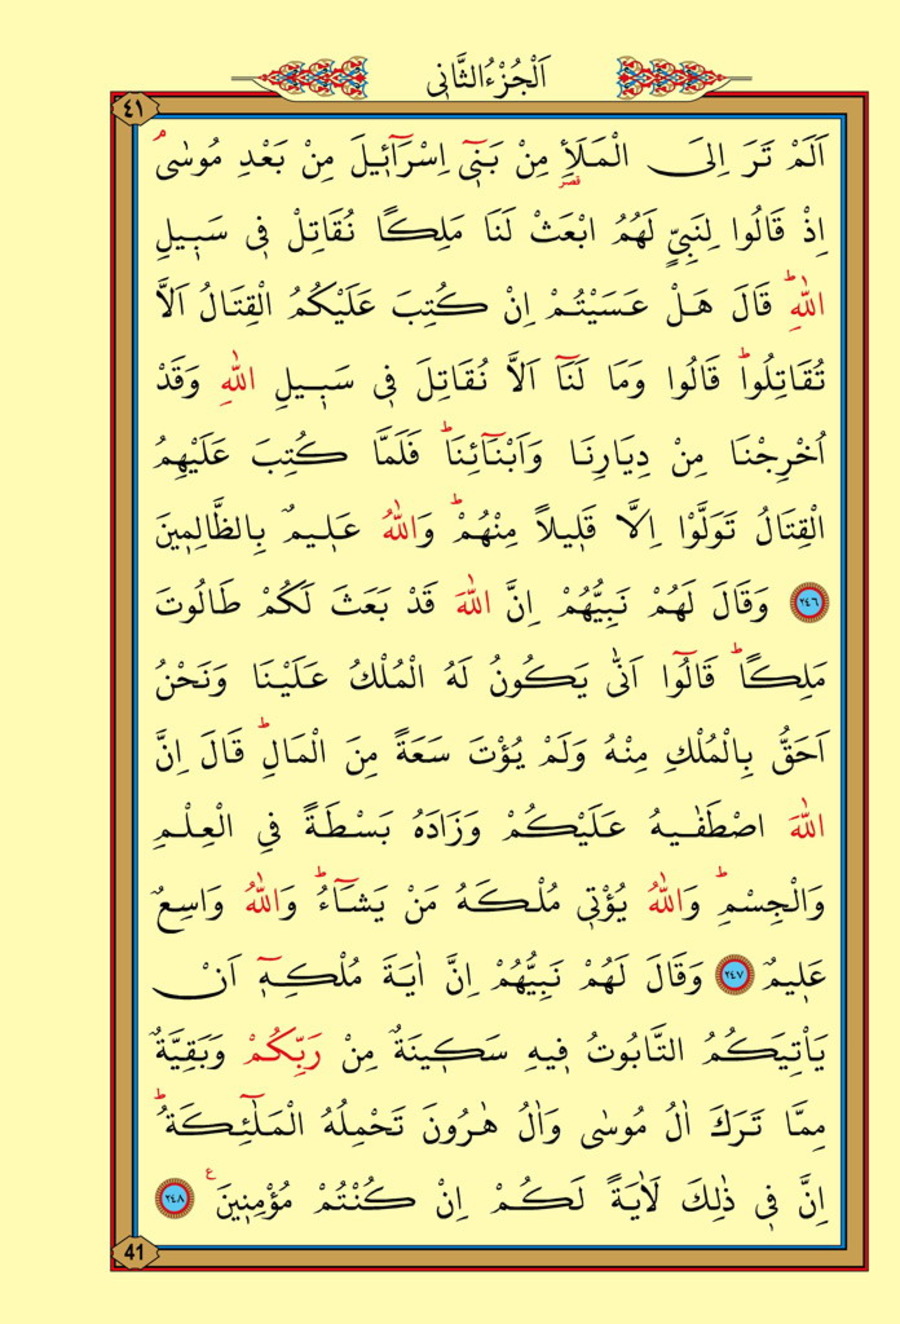 اَلْجُزْءُ الثَّانٖى
٤١
اَلَمْ تَرَ اِلَى الْمَلَأِ مِنْ بَنٖٓى اِسْرَٓائٖلَ مِنْ بَعْدِ مُوسٰىۘ
قصر
اِذْ قَالُوا لِنَبِىٍّ لَهُمُ ابْعَثْ لَنَا مَلِكًا نُقَاتِلْ فٖى سَبٖيلِ
اللّٰهِؕ قَالَ هَلْ عَسَيْتُمْ اِنْ كُتِبَ عَلَيْكُمُ الْقِتَالُ اَلَّا
تُقَاتِلُواؕ قَالُوا وَمَا لَنَٓا اَلَّا نُقَاتِلَ فٖى سَبٖيلِ اللّٰهِ وَقَدْ
اُخْرِجْنَا مِنْ دِيَارِنَا وَاَبْنَٓائِنَاؕ فَلَمَّا كُتِبَ عَلَيْهِمُ
الْقِتَالُ تَوَلَّوْا اِلَّا قَلٖيلاً مِنْهُمْؕ وَاللّٰهُ عَلٖيمٌ بِالظَّالِمٖينَ
٢٤٦ وَقَالَ لَهُمْ نَبِيُّهُمْ اِنَّ اللّٰهَ قَدْ بَعَثَ لَكُمْ طَالُوتَ
مَلِكًاؕ قَالُٓوا اَنّٰى يَكُونُ لَهُ الْمُلْكُ عَلَيْنَا وَنَحْنُ
اَحَقُّ بِالْمُلْكِ مِنْهُ وَلَمْ يُؤْتَ سَعَةً مِنَ الْمَالِؕ قَالَ اِنَّ
اللّٰهَ اصْطَفٰيهُ عَلَيْكُمْ وَزَادَهُ بَسْطَةً فِى الْعِلْمِ
وَالْجِسْمِؕ وَاللّٰهُ يُؤْتٖى مُلْكَهُ مَنْ يَشَٓاءُؕ وَاللّٰهُ وَاسِعٌ
عَلٖيمٌ ٢٤٧ وَقَالَ لَهُمْ نَبِيُّهُمْ اِنَّ اٰيَةَ مُلْكِهٖٓ اَنْ
يَاْتِيَكُمُ التَّابُوتُ فٖيهِ سَكٖينَةٌ مِنْ رَبِّكُمْ وَبَقِيَّةٌ
مِمَّا تَرَكَ اٰلُ مُوسٰى وَاٰلُ هٰرُونَ تَحْمِلُهُ الْمَلٰٓئِكَةُؕ
اِنَّ فٖى ذٰلِكَ لَاٰيَةً لَكُمْ اِنْ كُنْتُمْ مُؤْمِنٖينَ ع ٢٤٨
41